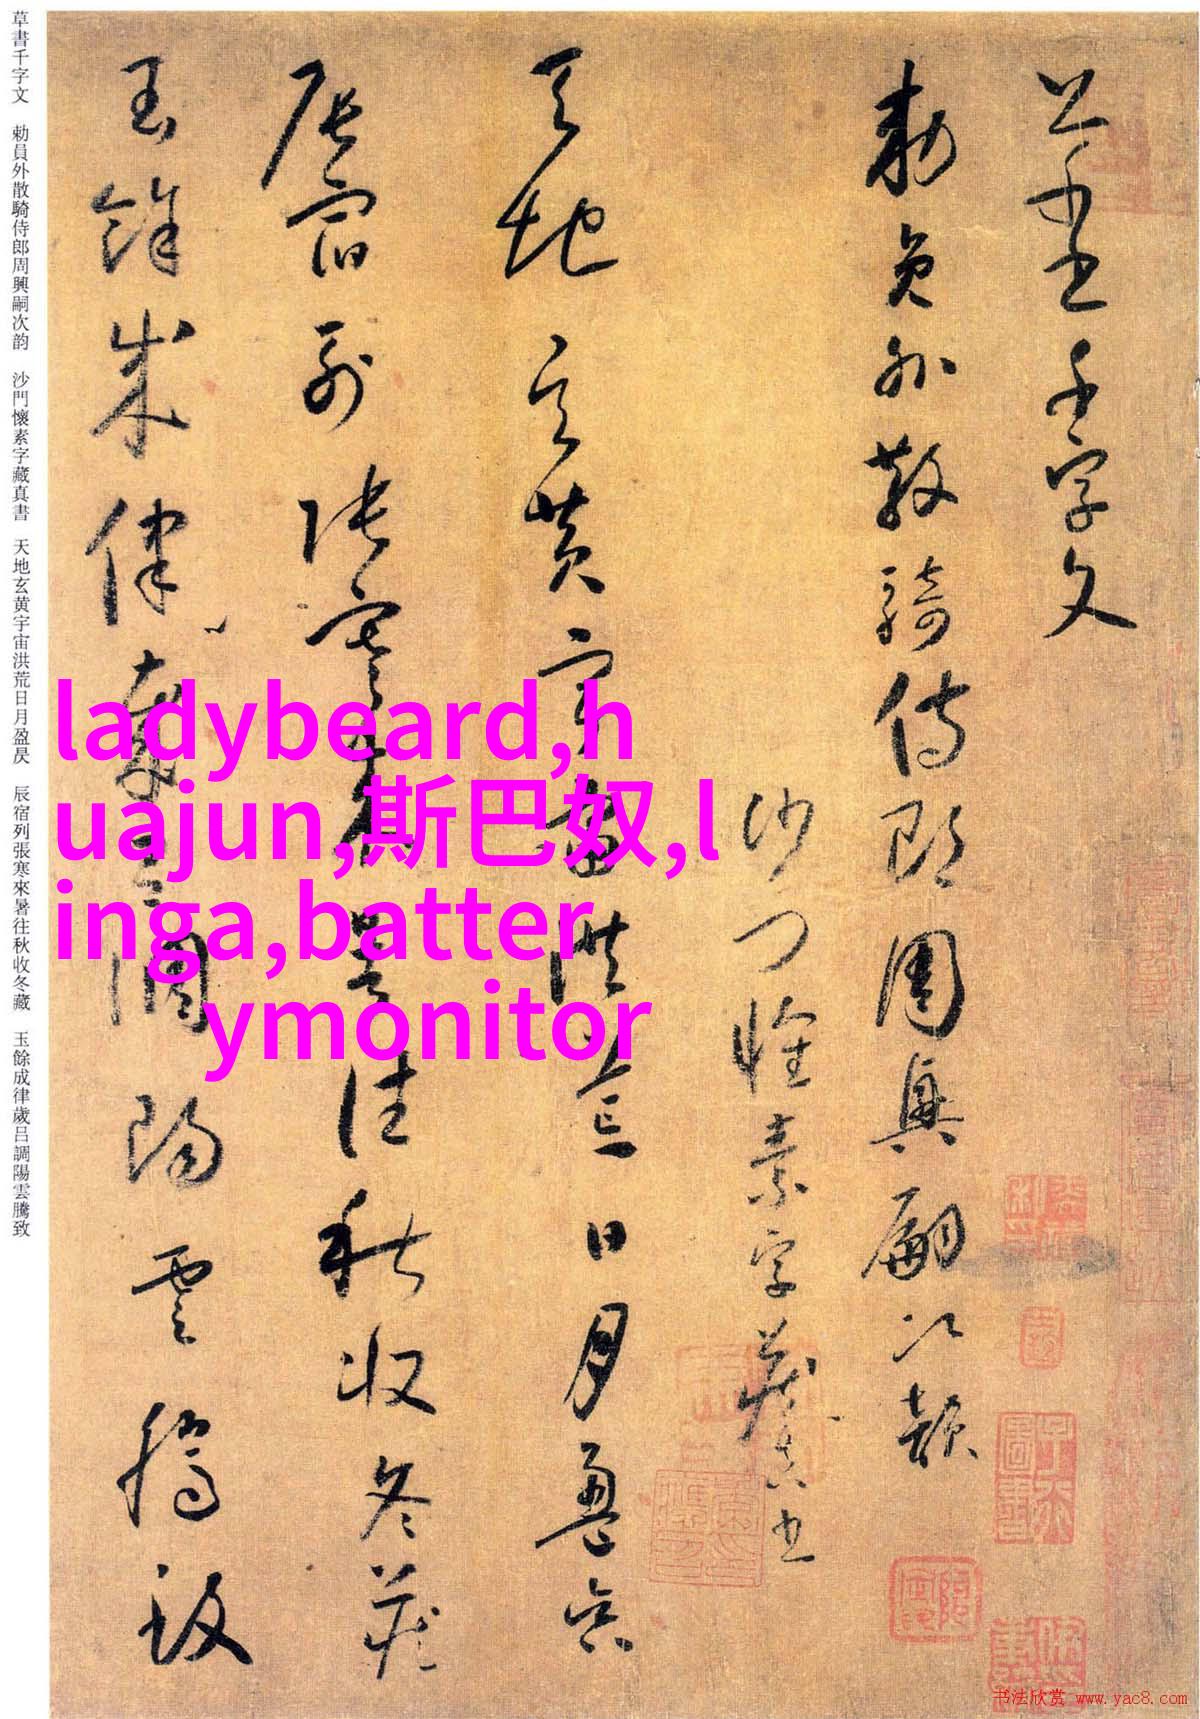 草書千字文
敕員外散騎侍郎周興嗣次韻
沙門懷素字藏真書
天地玄黄宇宙洪荒日月盈昃
辰宿列張寒來暑往秋收冬藏
玉餘成律歲呂調陽雲騰致
草書千字文　勅員外散騎侍郎周興嗣次韵　沙門懷素字藏真書　天地玄黄宇宙洪荒日月盈昃　辰宿列張寒來暑往秋收冬藏　玉餘成律歲吕調陽雲騰致
ladybeard,h
uajun,斯巴奴,l
inga,batter
ymonitor
书法欣赏 www.yac8.com